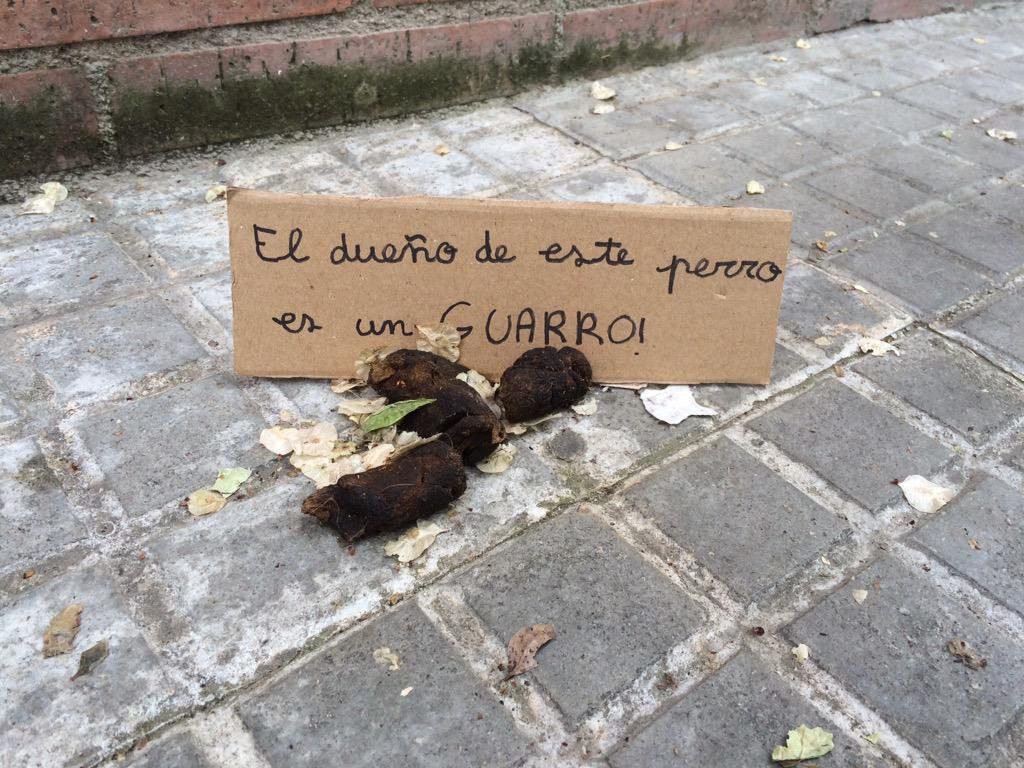 El dueño de este perro
es un GUARRO!